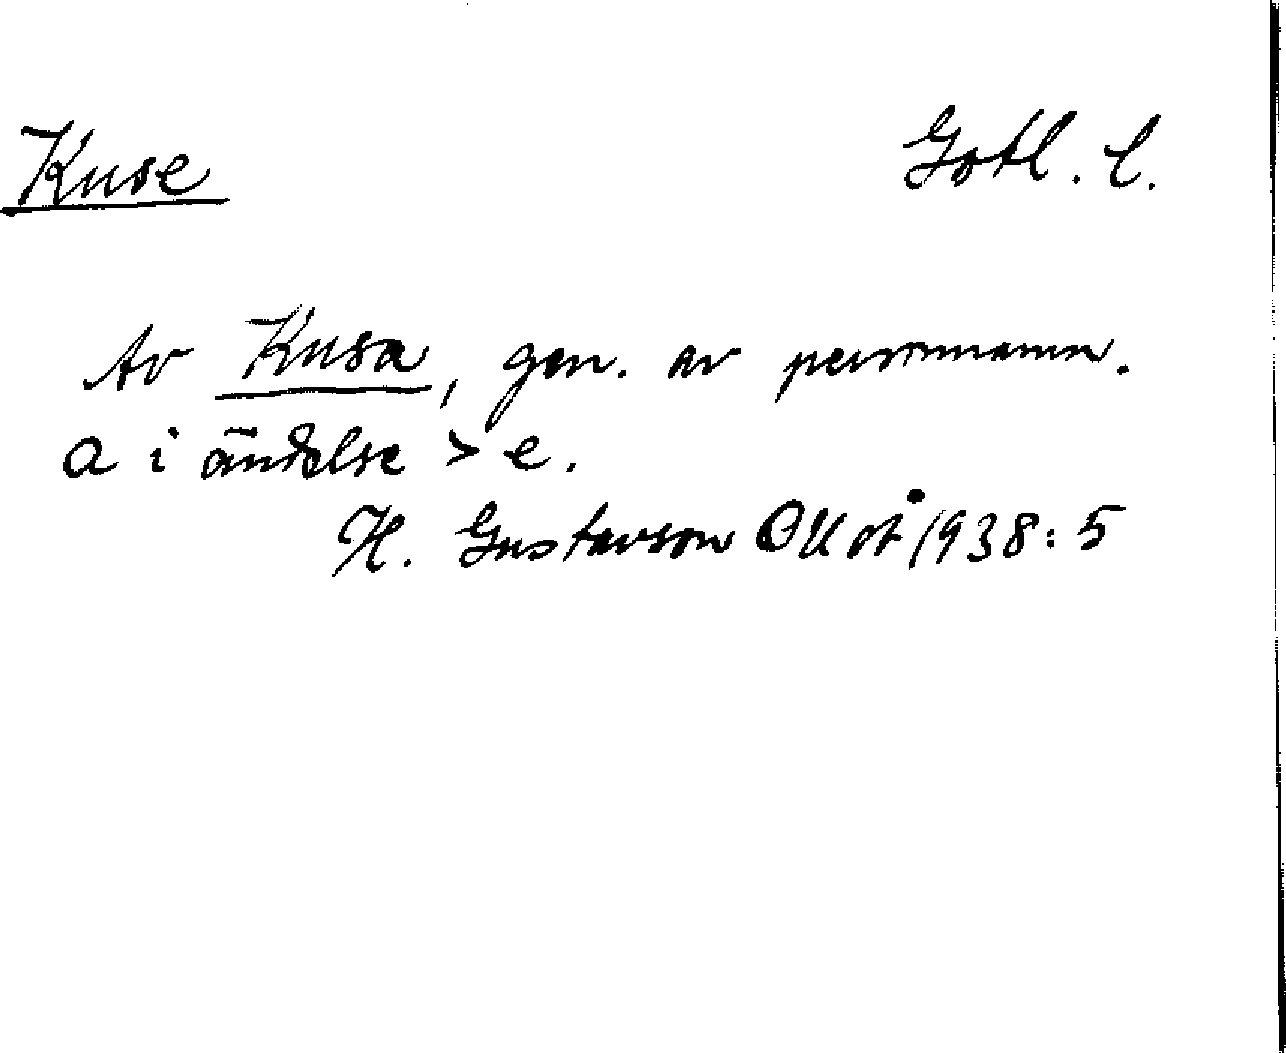 Kuse
Gotl. l.
Av Kusa, gen. av personnamn.
a i ändelse > e.
H. Gustavson OUoÅ 1938:5